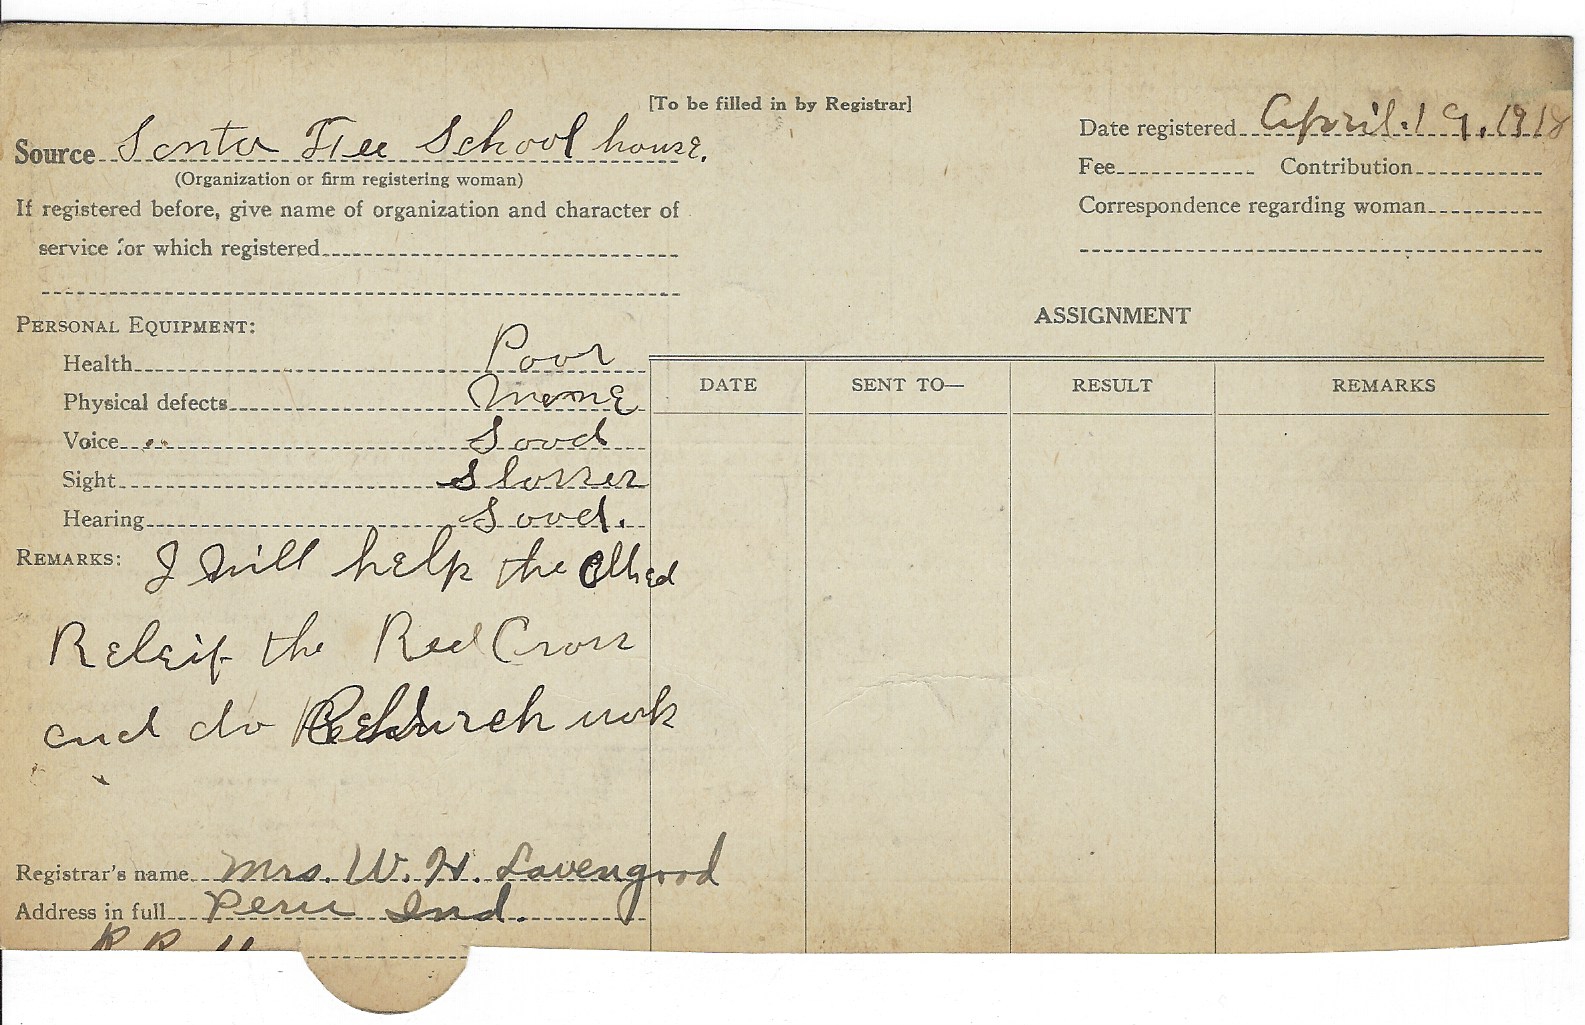 [To be filled in by Registrar]
Source Santa Fee School house.
(Organization or firm registering woman)
If registered before, give name of organization and character of
service for which registered
Date registered April. 19, 1918
Fee Contribution
Correspondence regarding woman
PERSONAL EQUIPMENT:
Health Poor
Physical defects None
Voice Good
Sight Glosses
Hearing Good.
REMARKS: I will help the Allied
Releif the Red Cross
and do Church work
ASSIGNMENT
DATE SENT TO— RESULT REMARKS
Registrar's name Mrs. W. H. Lavengood
Address in full Peru Ind.
R R